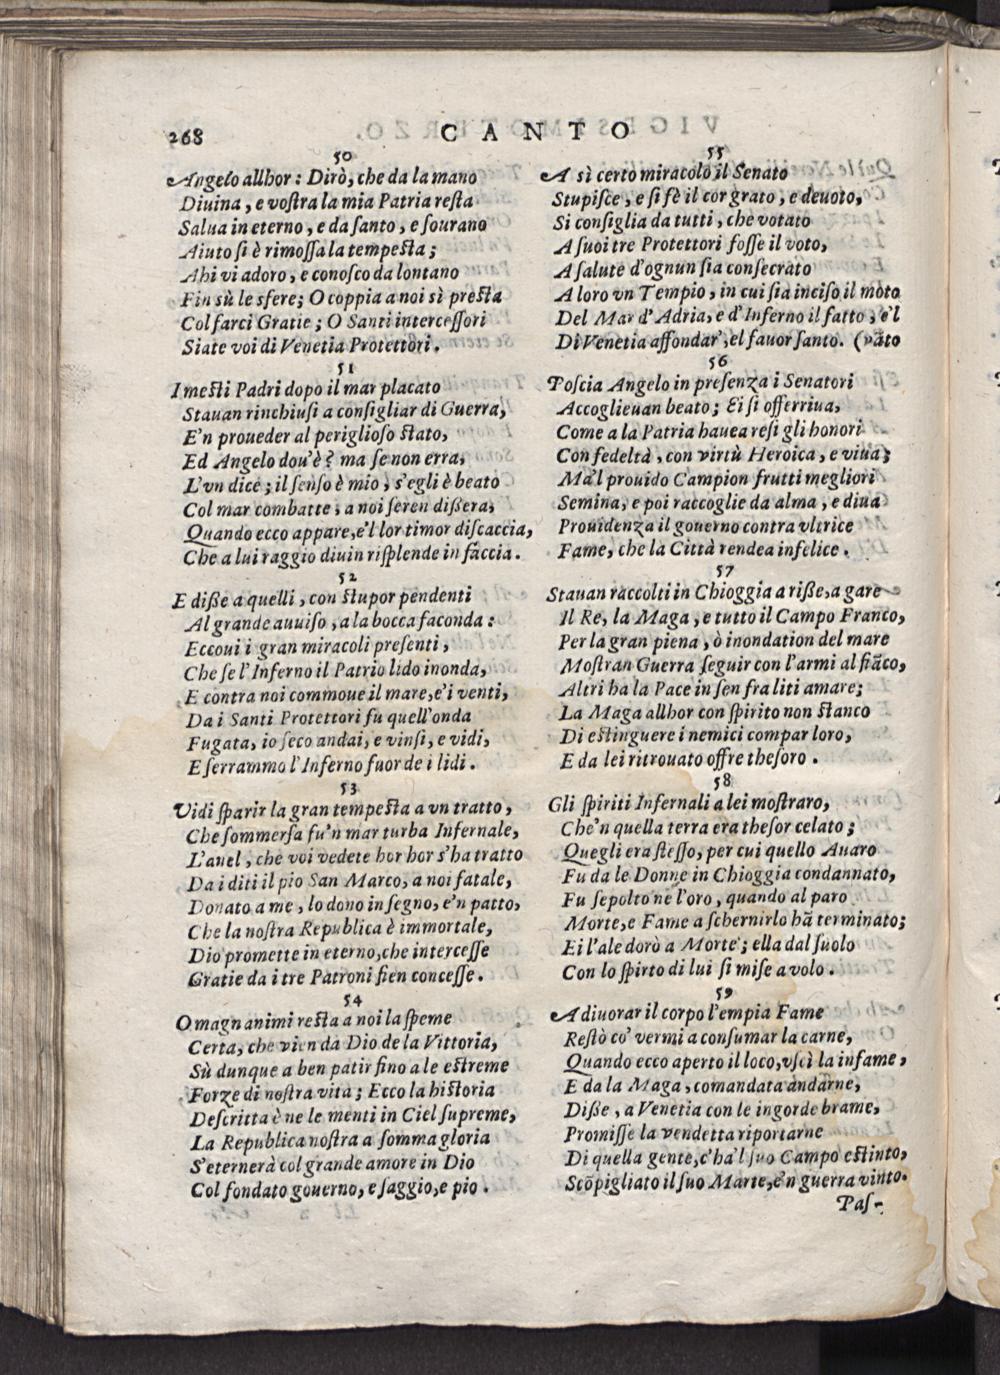 268 CANTO
50
Angelo allhor: Dirò, che da la mano
Diuina, e vostra la mia Patria resta
Salua in eterno, e da santo, e sourano
Aiuto si è rimossa la tempesta;
Ahi vi adoro, e conosco da lontano
Fin sù le sfere; O coppia a noi sì presta
Col farci Gratie; O Santi intercessori
Siate voi di Venetia Protettori.
51
I mesti Padri dopo il mar placato
Stauan rinchiusi a consigliar di Guerra,
E'n proueder al periglioso stato,
Ed Angelo dou'è? ma se non erra,
L'vn dice; il senso è mio, s'egli è beato
Col mar combatte, a noi seren dißera,
Quando ecco appare, e'l lor timor discaccia,
Che a lui raggio diuin risplende in faccia.
52
E diße a quelli, con stupor pendenti
Al grande auuiso, a la bocca faconda:
Eccoui i gran miracoli presenti,
Che se l'Inferno il Patrio lido inonda,
E contra noi commoue il mare, e'i venti,
Da i Santi Protettori fu quell'onda
Fugata, io seco andai, e vinsi, e vidi,
E serrammo l'Inferno fuor de i lidi.
53
Vidi sparir la gran tempesta a vn tratto,
Che sommersa fu'n mar turba Infernale,
L'anel, che voi vedete hor hor s'ha tratto
Da i diti il pio San Marco, a noi fatale,
Donato a me, lo dono in segno, e'n patto,
Che la nostra Republica è immortale,
Dio promette in eterno, che intercesse
Gratie da i tre Patroni fien concesse.
54
O magnanimi resta a noi la speme
Certa, che vien da Dio de la Vittoria,
Sù dunque a ben patir fino a le estreme
Forze di nostra vita; Ecco la historia
Descritta è ne le menti in Ciel supreme,
La Republica nostra a somma gloria
S'eternerà col grande amore in Dio
Col fondato gouerno, e saggio, e pio.
55
A sì certo miracolo il Senato
Stupisce, e si fè il cor grato, e deuoto,
Si consiglia da tutti, che votato
A suoi tre Protettori fosse il voto,
A salute d'ognun sia consecrato
A loro vn Tempio, in cui sia inciso il moto
Del Mar d'Adria, e d'Inferno il fatto, e'l
Di Venetia affondar', el fauor santo. (vāto
56
Poscia Angelo in presenza i Senatori
Accoglieuan beato; Ei si offerriua,
Come a la Patria hauea resi gli honori
Con fedeltà, con virtù Heroica, e viua;
Ma'l prouido Campion frutti megliori
Semina, e poi raccoglie da alma, e diua
Prouidenza il gouerno contra vltrice
Fame, che la Città rendea infelice.
57
Stauan raccolti in Chioggia a riße, a gare
Il Re, la Maga, e tutto il Campo Franco,
Per la gran piena, ò inondation del mare
Mostran Guerra seguir con l'armi al fiāco,
Altri ha la Pace in sen fra liti amare;
La Maga allhor con spirito non stanco
Di estinguere i nemici compar loro,
E da lei ritrouato offre thesoro.
58
Gli spiriti Infernali a lei mostraro,
Che'n quella terra era thesor celato;
Quegli era stesso, per cui quello Auaro
Fu da le Donne in Chioggia condannato,
Fu sepolto ne l'oro, quando al paro
Morte, e Fame a schernirlo hā terminato;
Ei l'ale dorò a Morte; ella dal suolo
Con lo spirto di lui si mise a volo.
59
A diuorar il corpo l'empia Fame
Restò co' vermi a consumar la carne,
Quando ecco aperto il loco, vscì la infame,
E da la Maga, comandata andarne,
Diße, a Venetia con le ingorde brame,
Promisse la vendetta riportarne
Di quella gente, c'ha'l suo Campo estinto,
Scōpigliato il suo Marte, e'n guerra vinto.
Pas-